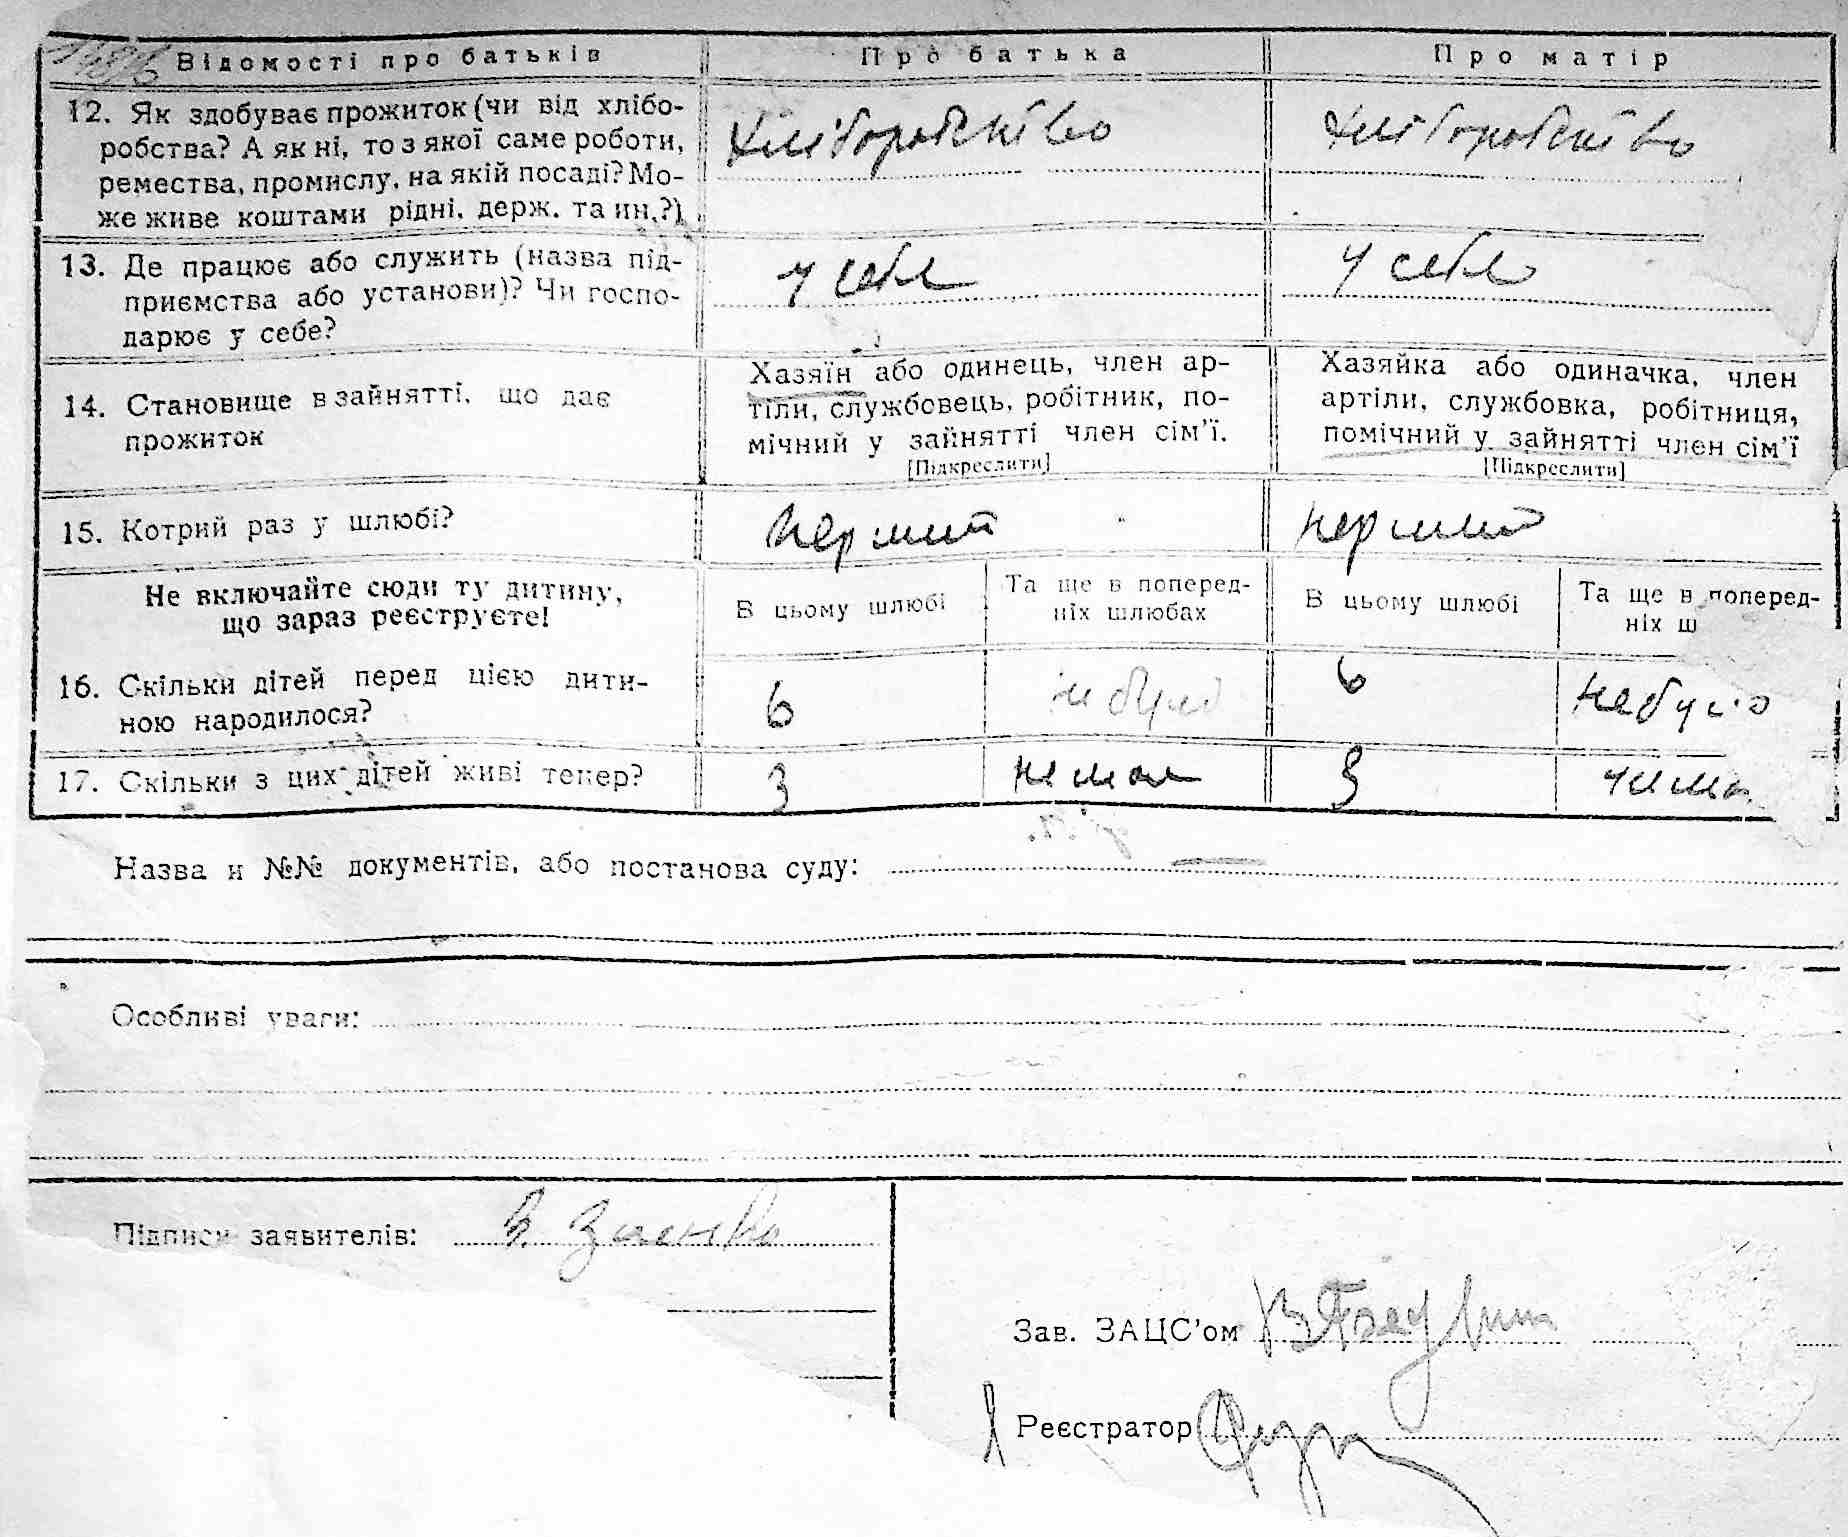 Відомості про батьків Про батька Про матір
12. Як здобуває прожиток (чи від хлібо-
робства? А як ні, то з якої саме роботи,
ремества, промислу, на якій посаді? Мо-
же живе коштами рідні, держ. та ин.?)
хліборобство хліборобство
13. Де працює або служить (назва під-
приємства або установи)? Чи госпо-
дарює у себе?
у себе у себе
14. Становище в зайнятті, що дає
прожиток
Хазяїн або одинець, член ар-
тіли, службовець, робітник, по-
мічний у зайнятті член сім'ї.
[Підкреслити]
Хазяйка або одиначка, член
артіли, службовка, робітниця,
помічний у зайнятті член сім'ї
[Підкреслити]
15. Котрий раз у шлюбі? перший перший
Не включайте сюди ту дитину,
що зараз реєструєте!
В цьому шлюбі
Та ще в поперед-
ніх шлюбах
В цьому шлюбі
Та ще в поперед-
ніх ш
16. Скільки дітей перед цією дити-
ною народилося?
6 не було 6 не було
17. Скільки з цих дітей живі тепер? 3 немає 3 нема
Назва и №№ документів, або постанова суду:
Особливі уваги:
Підписи заявителів:
Зав. ЗАЦС'ом
Реєстратор